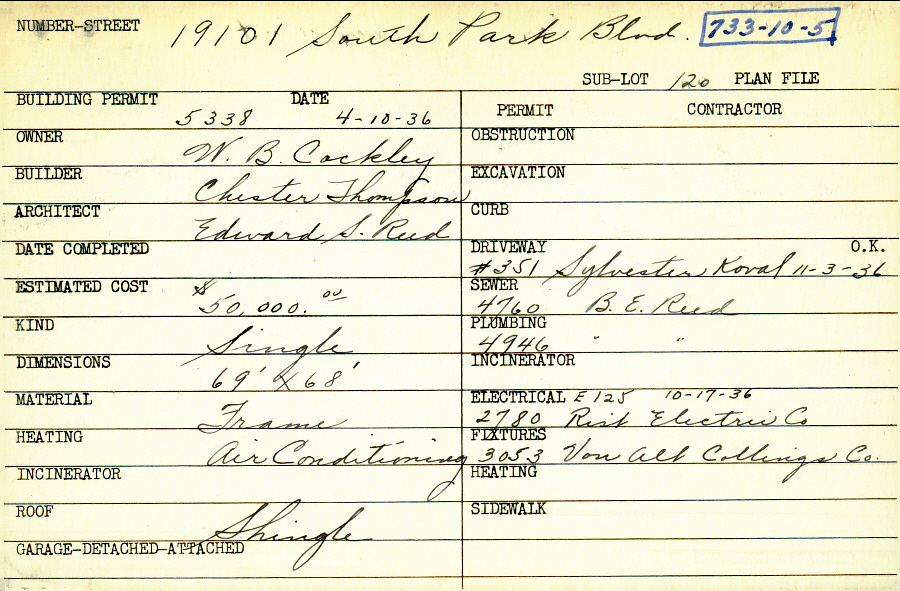 NUMBER-STREET 19101 South Park Blvd. 733-10-5
SUB-LOT 120 PLAN FILE
BUILDING PERMIT 5338 DATE 4-10-36
OWNER W. B. Cockley
BUILDER Chester Thompson
ARCHITECT Edward S. Reed
DATE COMPLETED
ESTIMATED COST $50,000.00
KIND Single
DIMENSIONS 69' x 68'
MATERIAL Frame
HEATING Air Conditioning
INCINERATOR
ROOF Shingle
GARAGE-DETACHED-ATTACHED
PERMIT CONTRACTOR
OBSTRUCTION
EXCAVATION
CURB
DRIVEWAY O.K.
#351 Sylvester Koval 11-3-36
SEWER
4760 B. E. Reed
PLUMBING
4946 " "
INCINERATOR
ELECTRICAL E125 10-17-36
2780 Electric Co
FIXTURES
3053 Von Alt Collings Co.
HEATING
SIDEWALK